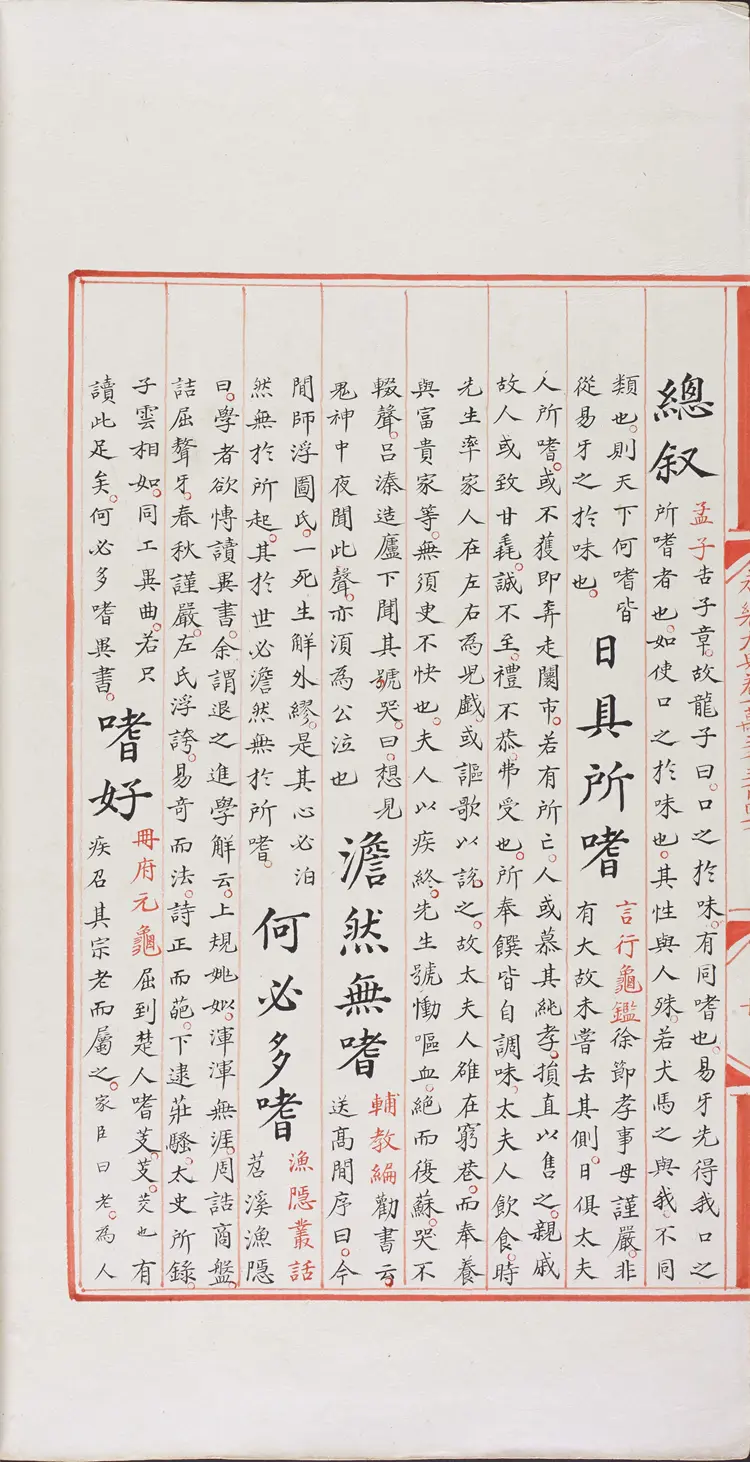 總叙
孟子告子章。故龍子曰。口之於味。有同嗜也。易牙先得我口之
所嗜者也。如使口之於味也。其性與人殊。若犬馬之與我不同
類也。則天下何嗜皆
從易牙之於味也。
日具所嗜
言行龜鑑徐節孝事母謹嚴。非
有大故未嘗去其側。日俱太夫
人所嗜。或不獲即奔走闤市。若有所亡。人或慕其純孝。損直以售之。親戚
故人或致甘毳。誠不至。禮不恭。弗受也。所奉饌皆自調味。太夫人飲食。時
先生率家人在左右為兒戲。或謳歌以說之。故太夫人雖在窮巷。而奉養
與富貴家等。無須臾不快也。夫人以疾終。先生號慟嘔血。絕而復蘇。哭不
輟聲。呂溱造廬下聞其號哭。曰。想見
鬼神中夜聞此聲。亦須為公泣也
澹然無嗜
輔教編勸書云。
送高閒序曰。今
閒師浮圖氏。一死生解外繆。是其心必泊
然無於所起。其於世必澹然無於所嗜。
何必多嗜
漁隱叢話
苕溪漁隱
曰。學者欲慱讀異書。余謂退之進學解云。上規姚姒。渾渾無涯。周誥商盤。
詰屈聱牙。春秋謹嚴。左氏浮誇。易奇而法。詩正而葩。下逮莊騷。太史所錄。
子雲相如。同工異曲。若只
讀此足矣。何必多嗜異書。
嗜好
冊府元龜屈到楚人嗜芰。芰。茭也有
疾召其宗老而屬之。家臣曰老。為人